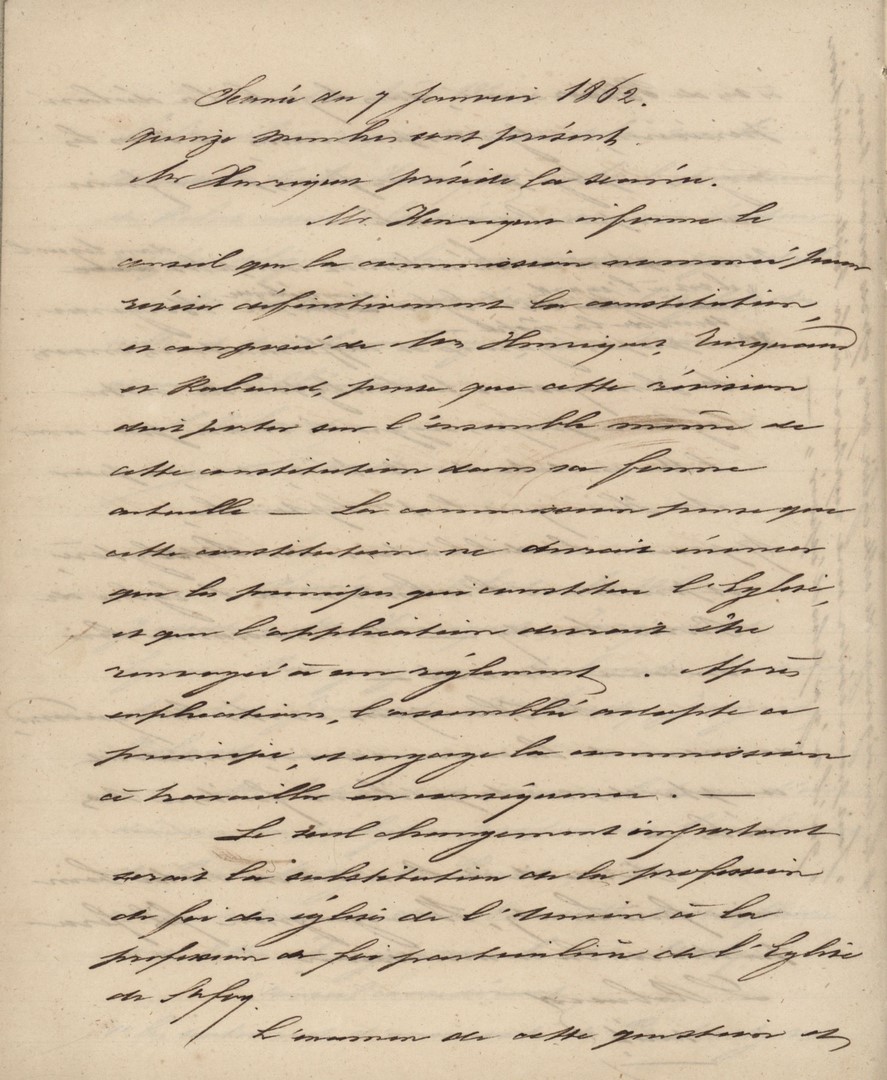 Séance du 7 Janvier 1862.
quinze membres sont présent.
Mr Henriquet préside la séance.
Mr. Henriquet informe le
conseil que la commission nommée pour
réviser définitivement la constitution,
et composée de Mrs Henriquet,
et Rabaud, pense que cette révision
doit porter sur l'ensemble même de
cette constitution dans sa forme
actuelle — La commission pense que
cette constitution ne devrait énoncer
que les principes qui constitue l'Eglise,
et que l'application devrait être
renvoyée à un réglement. Après
explications, l'assemblée adopte ce
principe, et engage la commission
à travailler en conséquence. —
Le seul changement important
serait la substitution de la profession
de foi des églises de l'Union à la
profession de foi particulière de l'Eglise
de Ste foy.
L'examen de cette question et